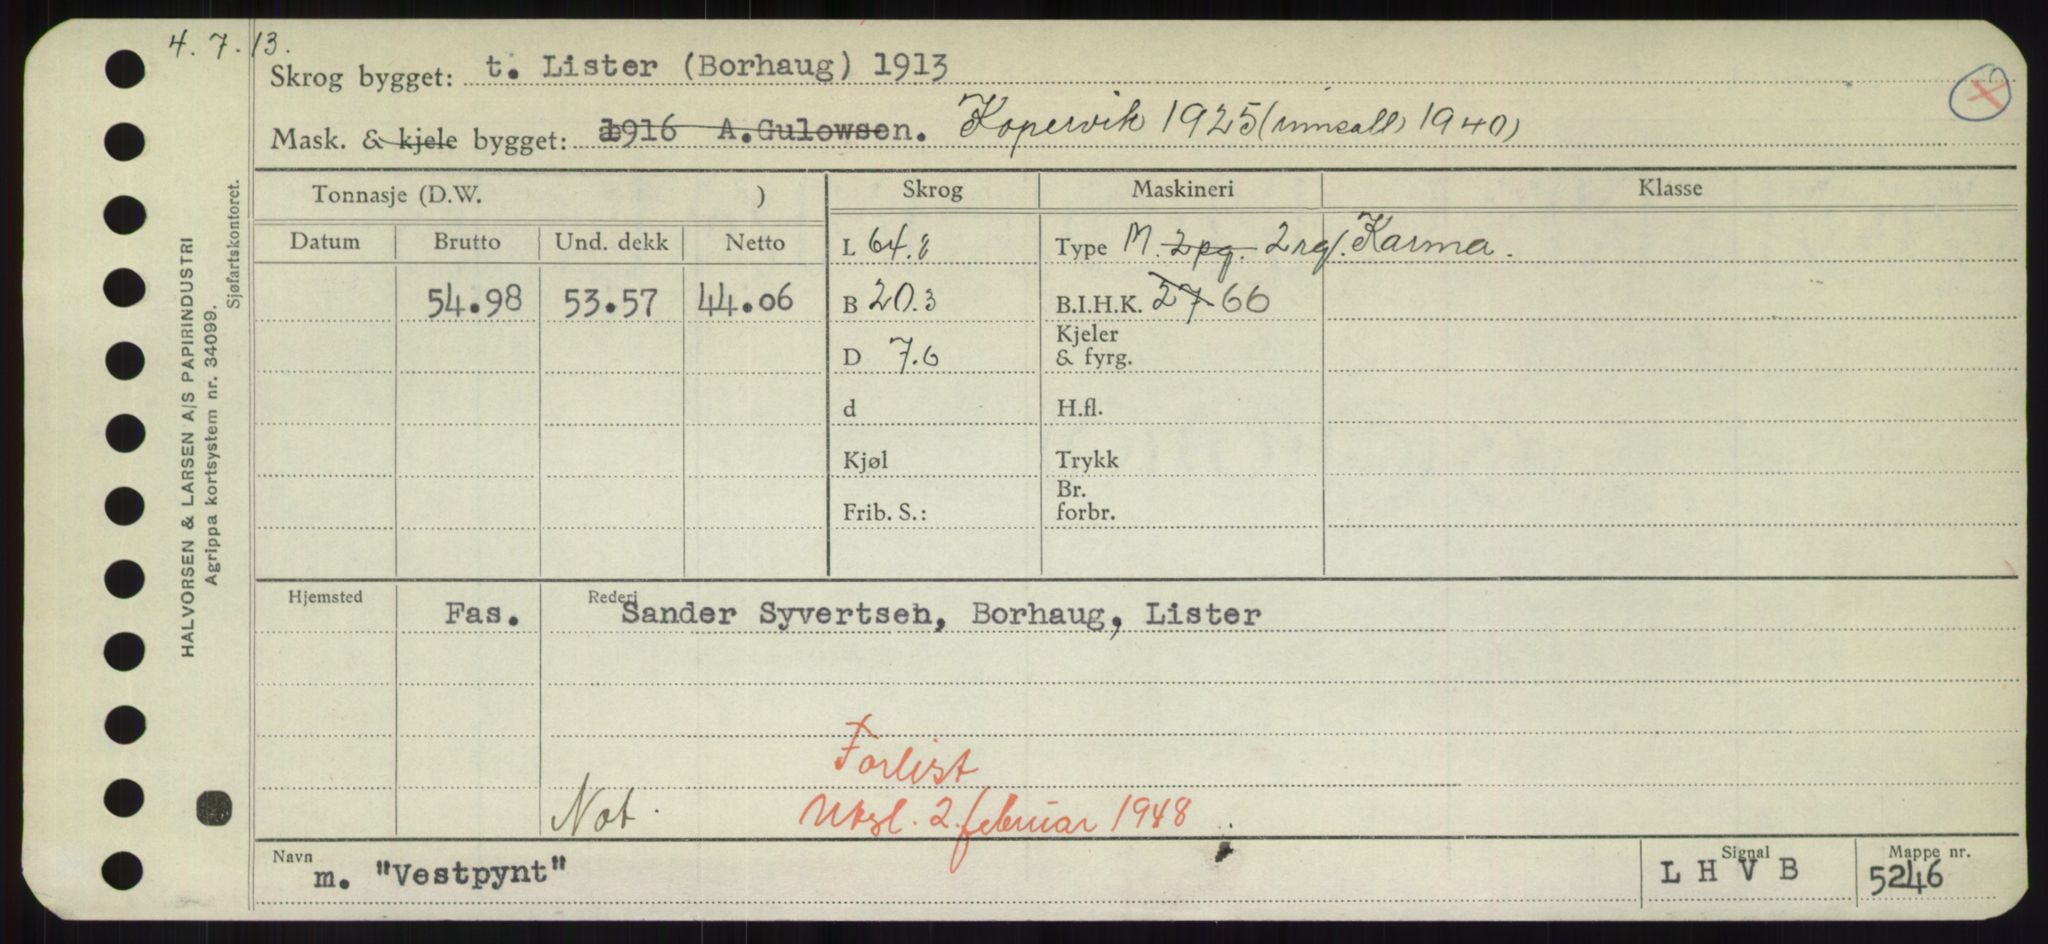 4. 7. 13.
Skrog bygget: t. Lister (Borhaug) 1913
Mask. & kjele bygget: 1916 A.Gulowsen. Kopervik 1925 (innsatt 1940)
HALVORSEN & LARSEN A/S PAPIRINDUSTRI
Agrippa kortsystem nr. 34099.
Sjøfartskontoret.
Tonnasje (D.W. ) Skrog Maskineri Klasse
Datum Brutto Und. dekk Netto L 64.8 Type M. 2 pg. 2 rgf. Karma.
54.98 53.57 44.06 B 20.3 B.I.H.K. 27 66
D 7.6 Kjeler & fyrg.
d H.fl.
Kjøl Trykk
Frib. S.: Br. forbr.
Hjemsted Rederi
Fas. Sander Syvertsen, Borhaug, Lister
Forlist
Not. Utgl. 2. februar 1948
Navn Signal Mappe nr.
m. "Vestpynt" L H V B 5246